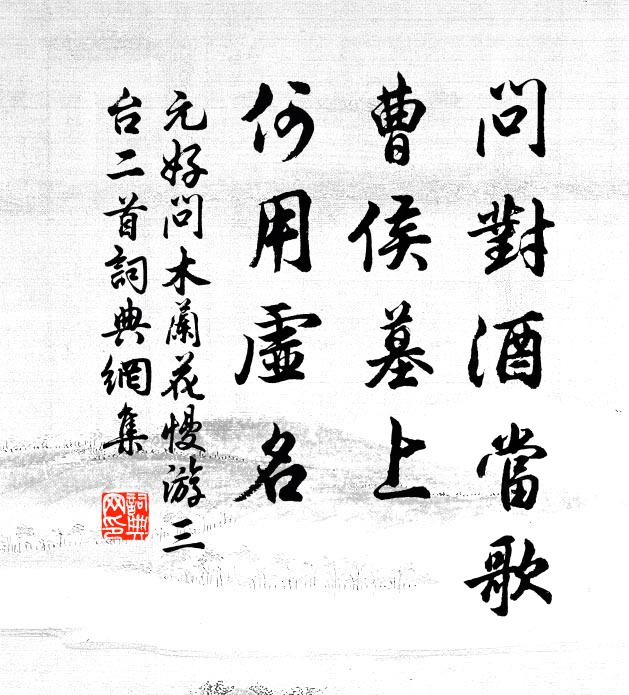 問對酒當歌
曹侯墓上
何用虛名
元好問木蘭花慢游三
台二首詞典網集
詞典
网印